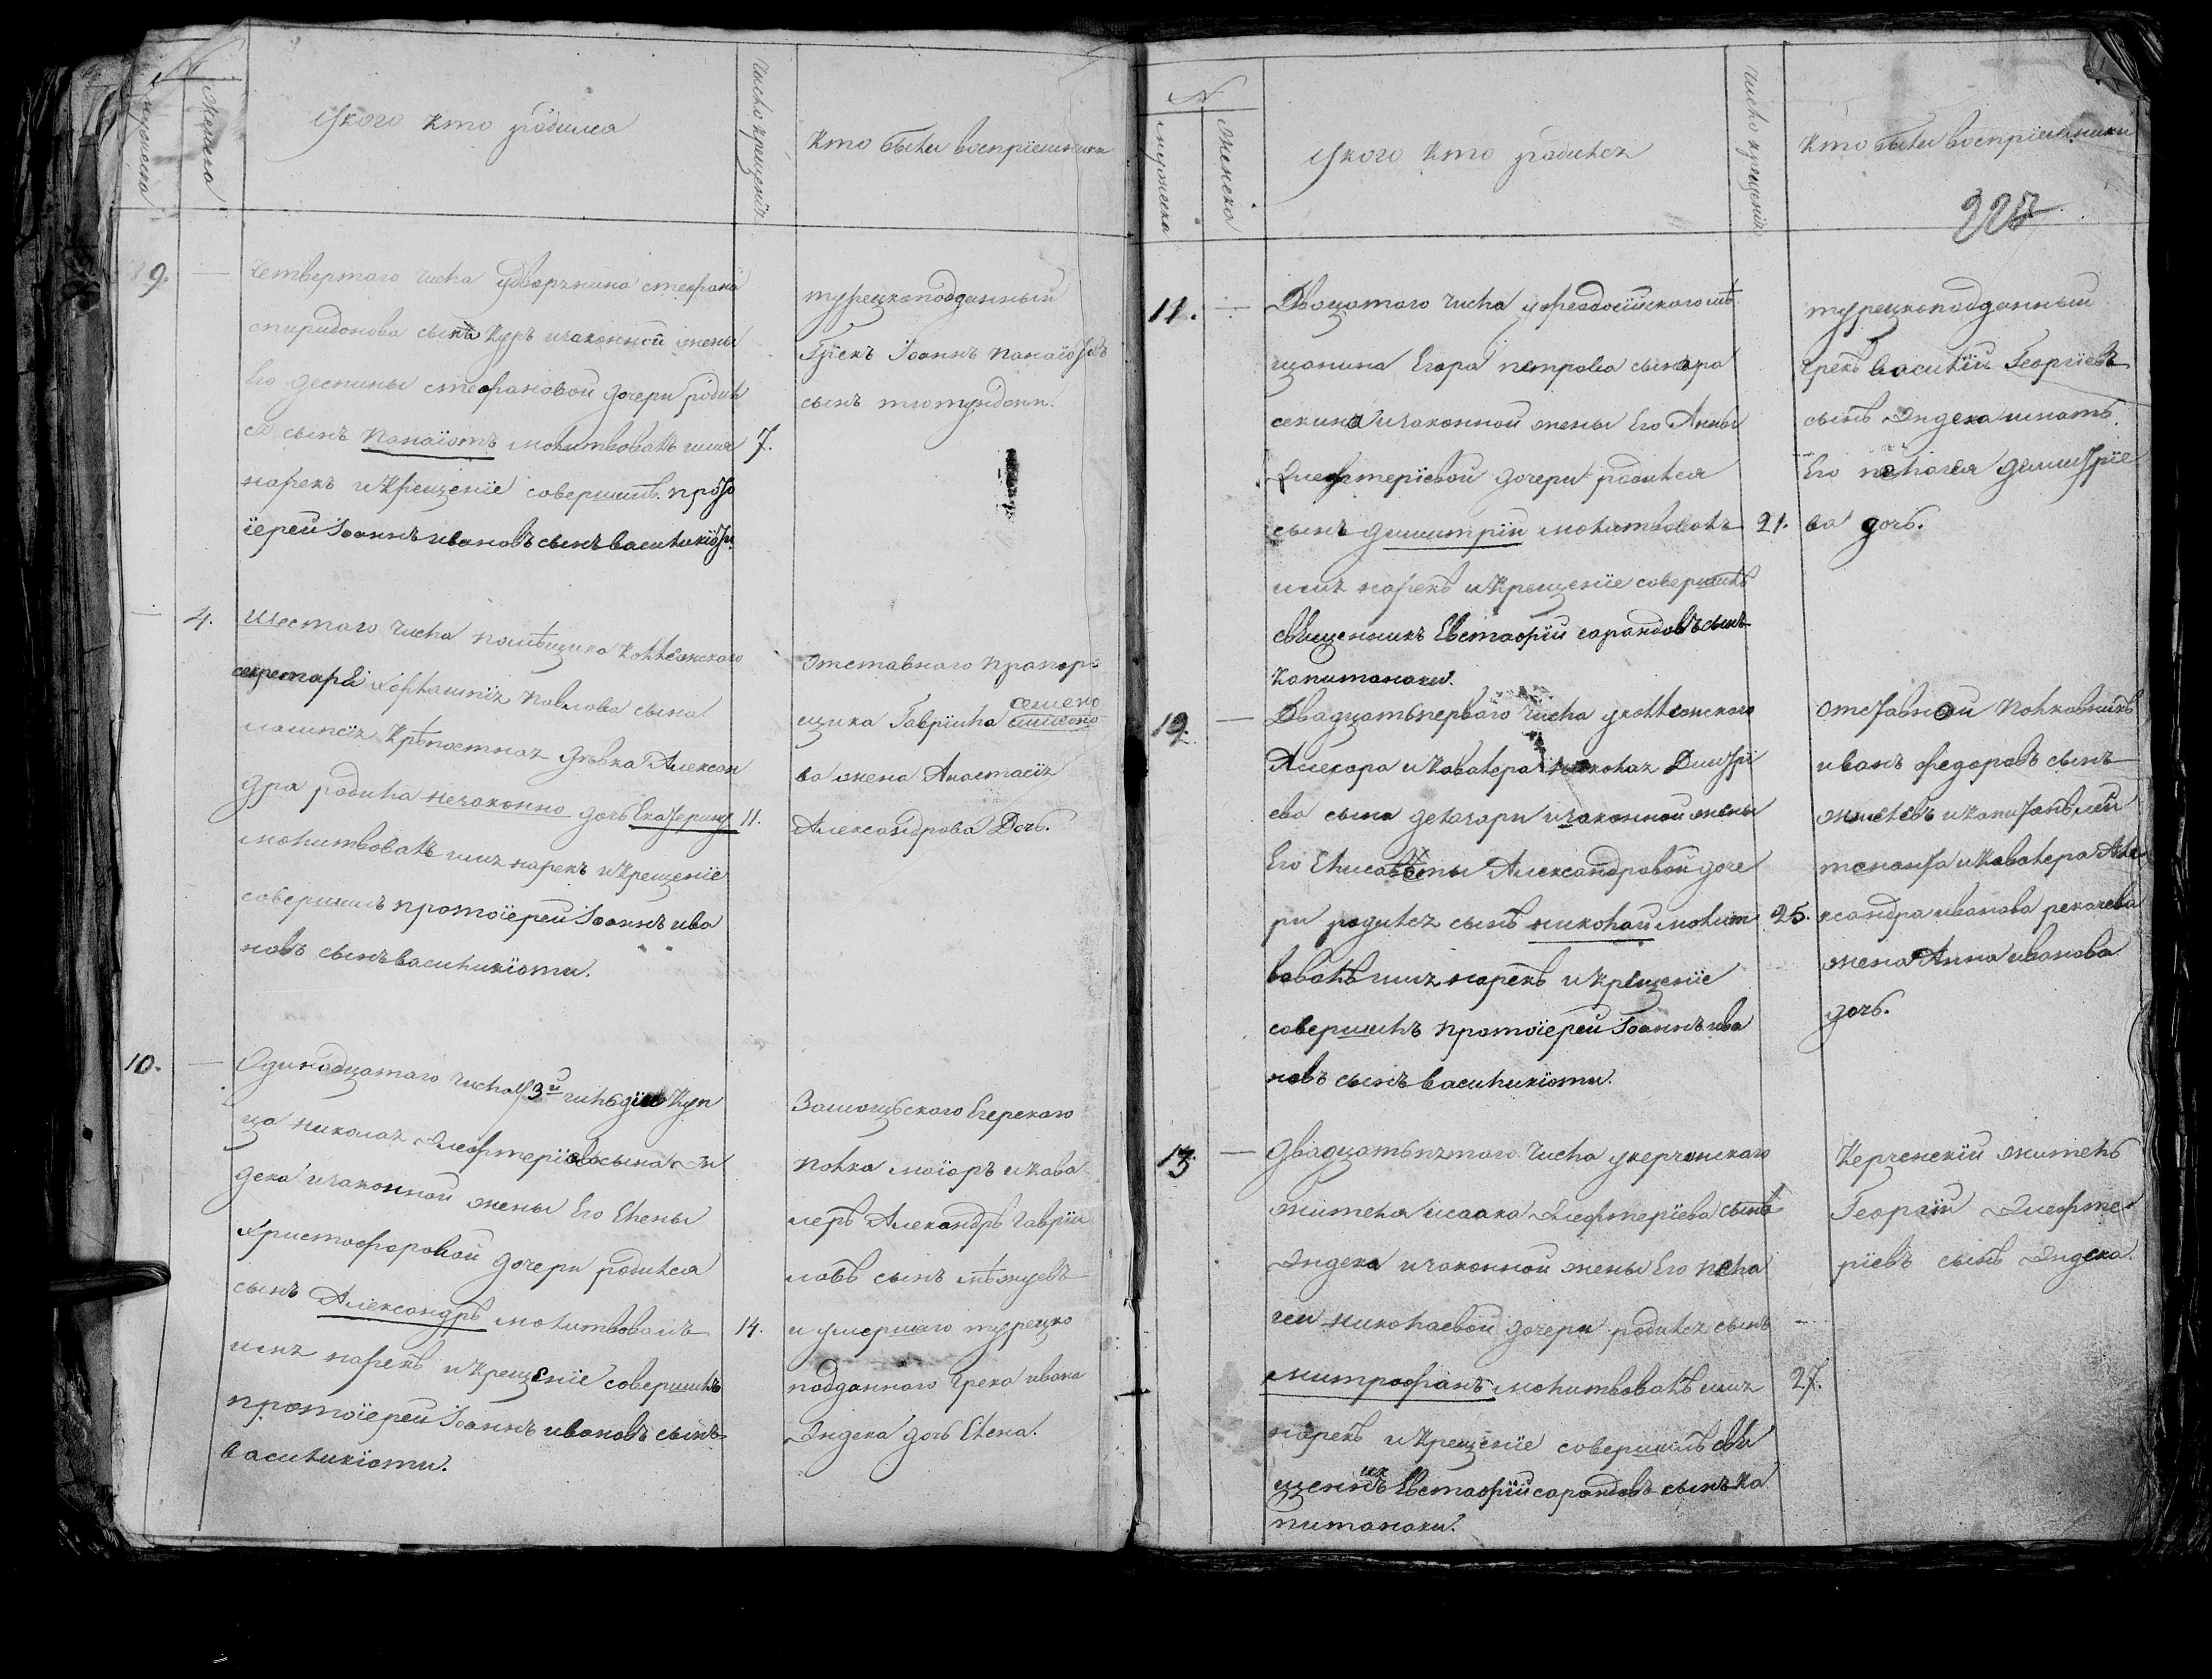 N
мужеска
Женска
У кого кто родился
Число крещенія
Кто были воспріемники
9. — Четвертаго числа у дворянина стефана
спиридонова сына Куръ изаконной жены
Его деспины стефановой дочери родил
ся сынъ панаіотъ молитвовалъ имя 7.
нарекъ и Крещеніе совершилъ прото
іерей Іоаннъ ивановъ сынъ василикіоти
турецкоподданный
Грекъ Іоаннъ панаіотовъ
сынъ
— 4. Шестаго числа помѣщика Коллежскаго
секретаря павлова сына
Крѣпостная дѣвка Алексан
дра родила незаконно дочь Екатерину 11.
молитвовалъ имя нарекъ и Крещеніе
совершилъ протоіерей Іоаннъ ива
новъ сынъ василикіоти.
Отставнаго прапор-
щика Гавріила семено
ва жена Анастасія
Александрова Дочь.
10. — Одинадцатаго числа у 3й гильдіи Куп
ца николая Элефтеріева сына Эн
дека изаконной жены Его Елены
Христофоровой дочери родился
сынъ Александръ молитвовалъ 14.
имя нарекъ и Крещеніе совершилъ
протоіерей Іоаннъ ивановъ сынъ
василикіоти.
Егерскаго
полка маіоръ и Кава
леръ Александръ Гавріи
ловъ сынъ
и умершаго турецко
подданнаго грека ивана
Эндека дочь Елена.
N
мужеска
Женска
У кого кто родился
Число крещенія
Кто были воспріемники
227
11. — Двацатаго числа у феодосійскаго мѣ
щанина Егора петрова сына ра
секина изаконной жены Его Анны
Элефтеріевой дочери родился
сынъ димитрій молитвовалъ 21.
имя нарекъ и Крещеніе совершилъ
священникъ Евстафій сарандовъ сынъ
Капитанаки.
турецкоподданный
грекъ василій Георгіевъ
сынъ Эндека имать
Его пелагея димитріе
ва дочь.
12. — Двадцатьперваго числа у коллежскаго
Асесора и Кавалера николая Димитрі
ева сына делагари изаконной жены
Его Елисаветы Александровой доче
ри родился сынъ николай молит 25.
вовалъ имя нарекъ и Крещеніе
совершилъ протоіерей Іоаннъ ива
новъ сынъ василикіоти.
Отставной полковникъ
иванъ федоровъ сынъ
и капитанъ лей
тенанта и Кавалера Але
ксандра иванова
жена Анна иванова
дочь.
13. — Двадцатьпятаго числа у керченскаго
жителя исаака Элефтеріева сына
Эндека изаконной жены Его пела
геи николаевой дочери родился сынъ
митрофанъ молитвовалъ имя 27.
нарекъ и Крещеніе совершилъ свя
щенникъ Евстафій сарандовъ сынъ Ка
питанаки.
Керченскій житель
Георгій Элефте
ріевъ сынъ Эндека.